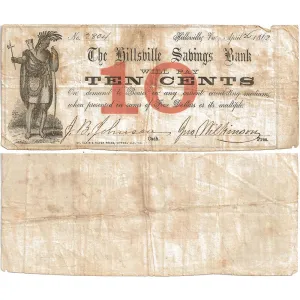 No. 2804 Hillsville, Va. April 21 1862
The Hillsville Savings Bank
WILL PAY
TEN CENTS
10
On demand to Bearer in any current circulating medium,
when presented in sums of Five Dollars or its multiple.
J B Johnson Cash. Jno Wilkinson Pres.